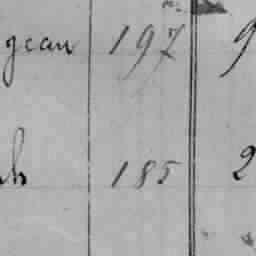 geau 197 9
185 2